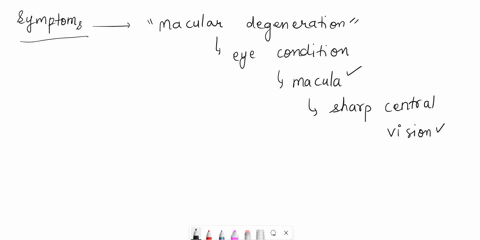 symptoms → "macular degeneration"
↳ eye condition
↳ macula ✓
↳ sharp central
vision ✓